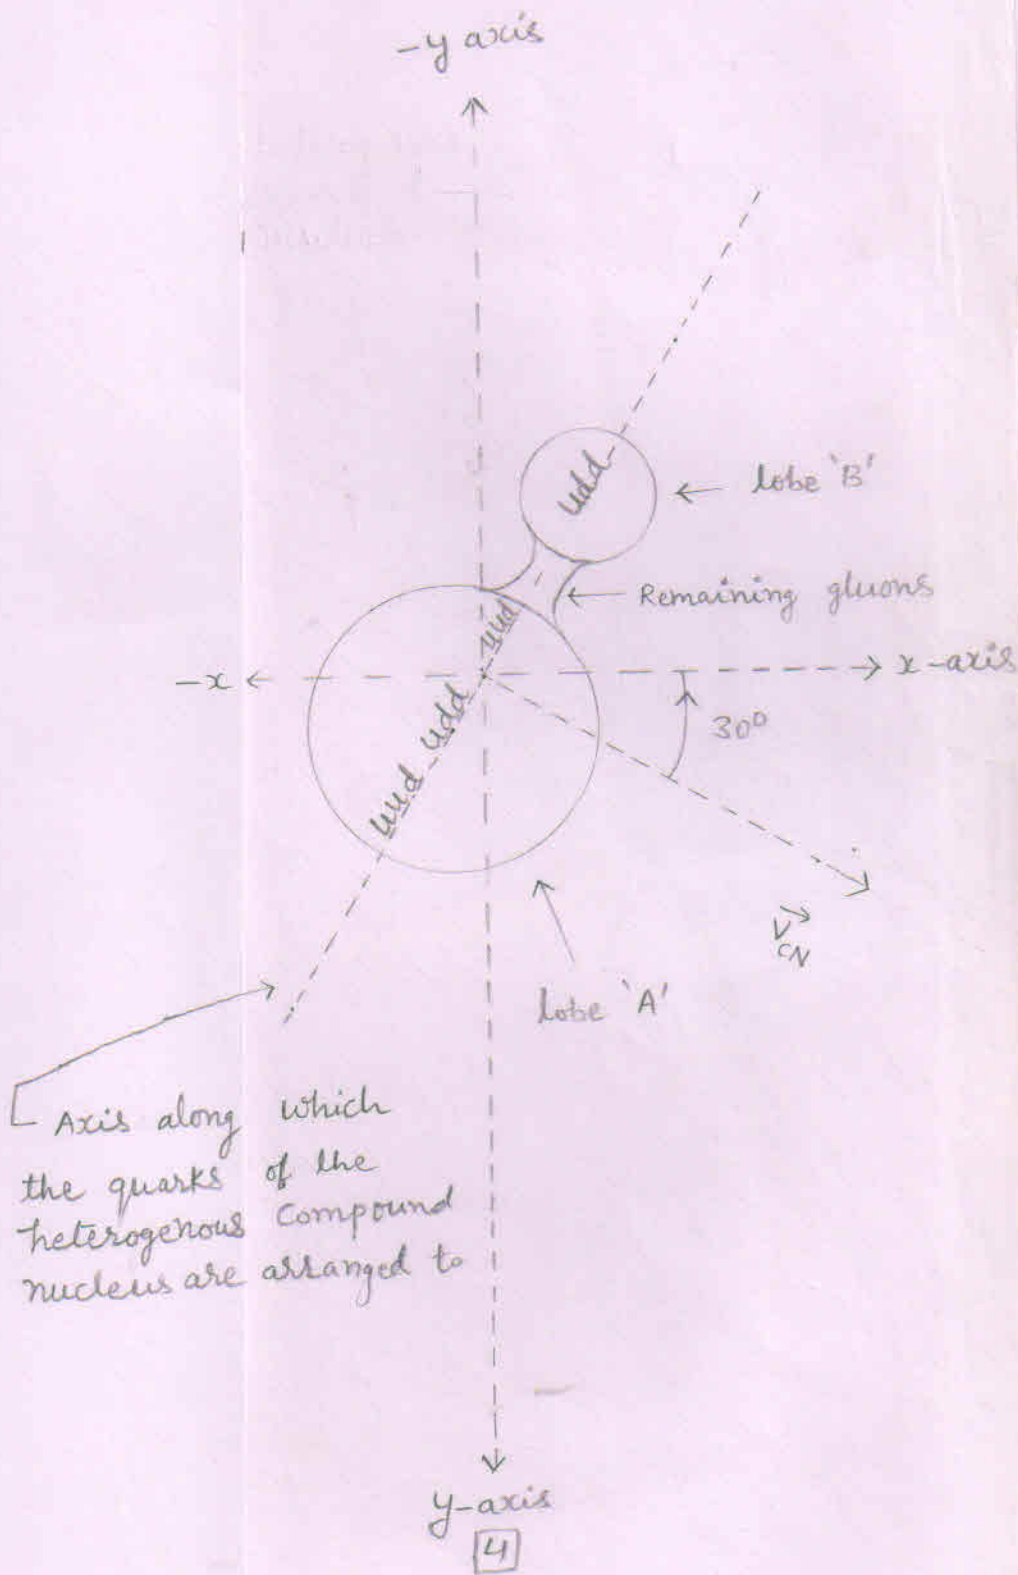 -y axis
udd
lobe 'B'
Remaining gluons
uud
-x
x-axis
30°
udd
uud
V
CN
lobe 'A'
Axis along which
the quarks of the
heterogenous compound
nucleus are arranged to
y-axis
4